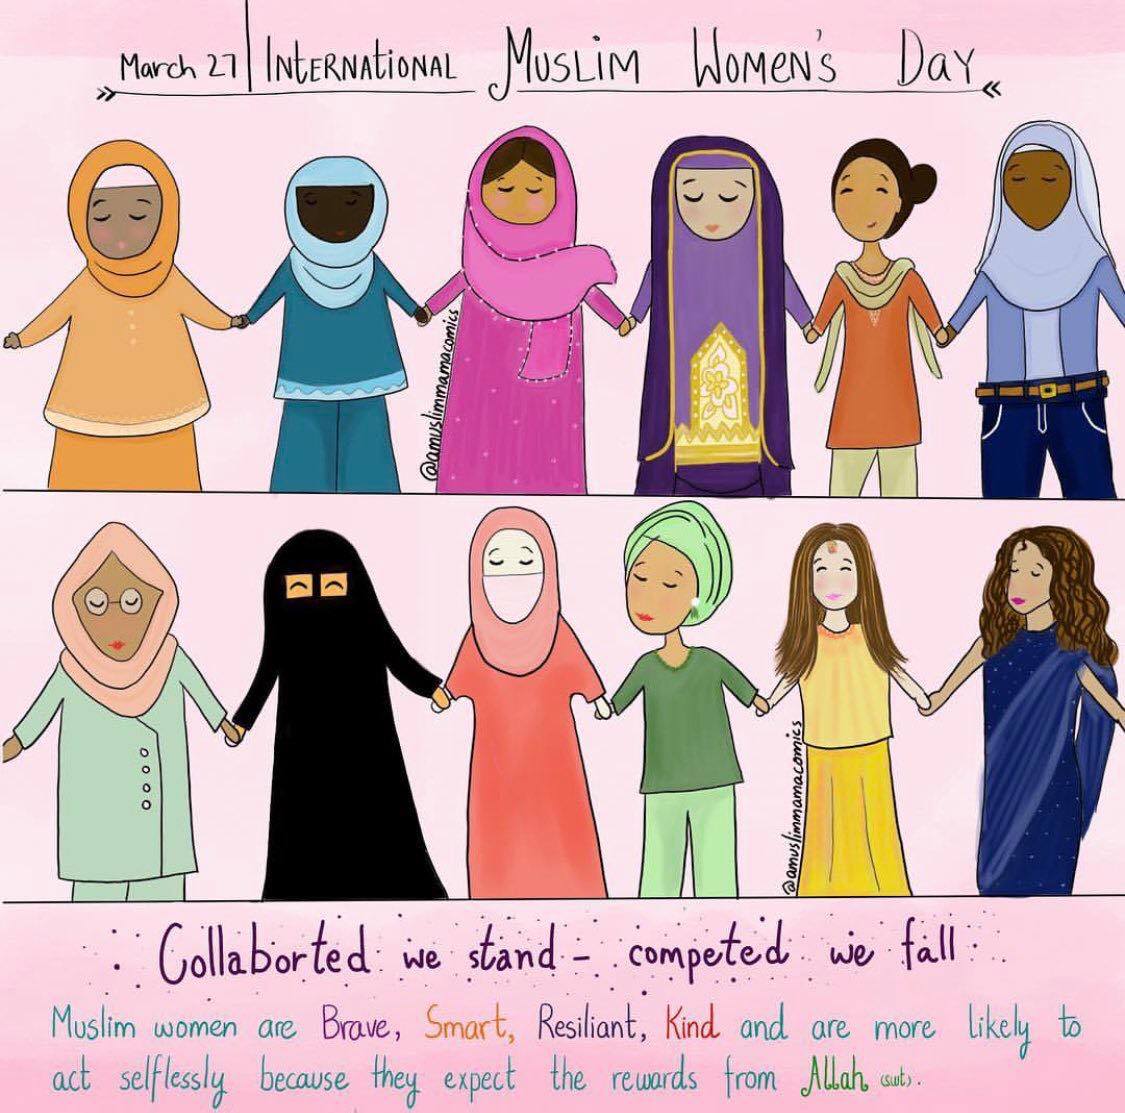 March 27 | International Muslim Women's Day
@amuslimmamacomics
@amuslimmamacomics
Collaborted we stand - competed we fall
Muslim women are Brave, Smart, Resiliant, Kind and are more likely to
act selflessly because they expect the rewards from Allah (swt).